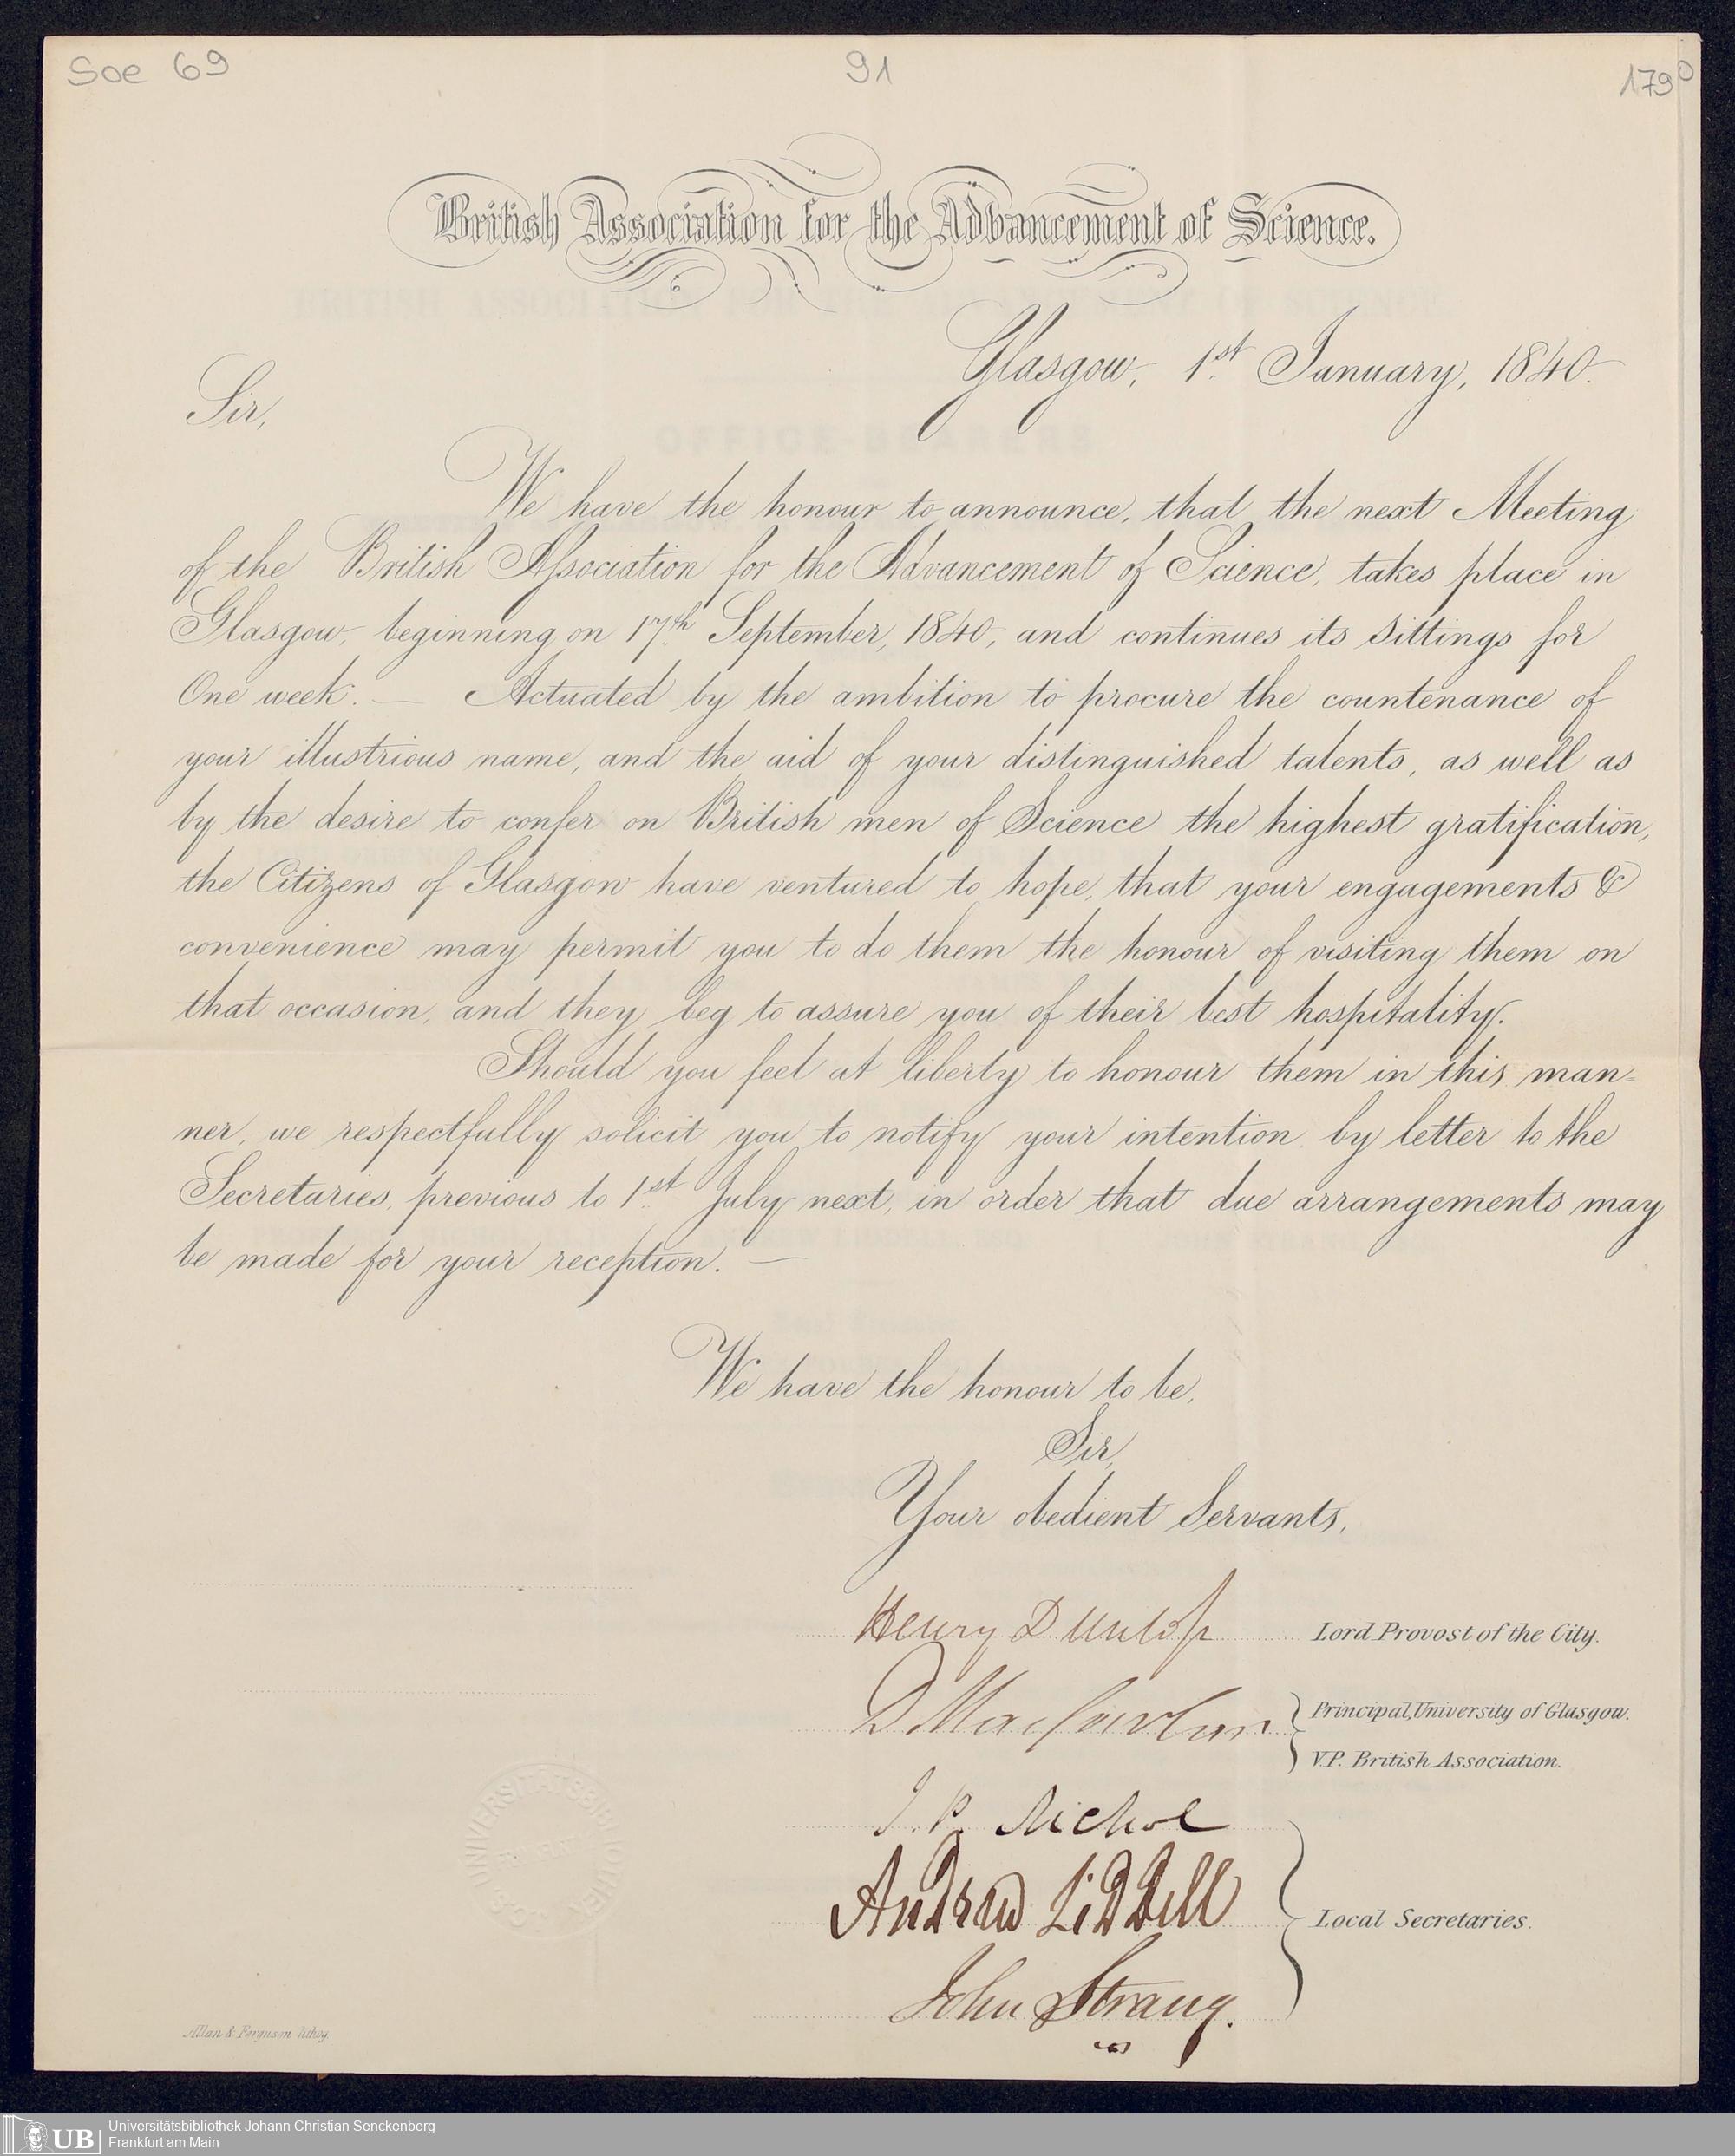 Soe 69
91
179
British Association for the Advancement of Science.
Glasgow, 1st January, 1840.
Sir,
We have the honour to announce, that the next Meeting
of the British Association for the Advancement of Science, takes place in
Glasgow, beginning on 17th September, 1840, and continues its sittings for
One week. — Actuated by the ambition to procure the countenance of
your illustrious name, and the aid of your distinguished talents, as well as
by the desire to confer on British men of Science the highest gratification,
the Citizens of Glasgow have ventured to hope, that your engagements &
convenience may permit you to do them the honour of visiting them on
that occasion, and they beg to assure you of their best hospitality.
Should you feel at liberty to honour them in this man=
ner, we respectfully solicit you to notify your intention by letter to the
Secretaries, previous to 1st July next, in order that due arrangements may
be made for your reception. —
We have the honour to be,
Sir,
Your obedient Servants,
Henry Dunlop Lord Provost of the City.
D Macfarlan Principal, University of Glasgow.
V.P. British Association.
J. P. Nichol
Andrew Liddell Local Secretaries.
John Strang.
Allan & Ferguson lithog.
UB
Universitätsbibliothek Johann Christian Senckenberg
Frankfurt am Main